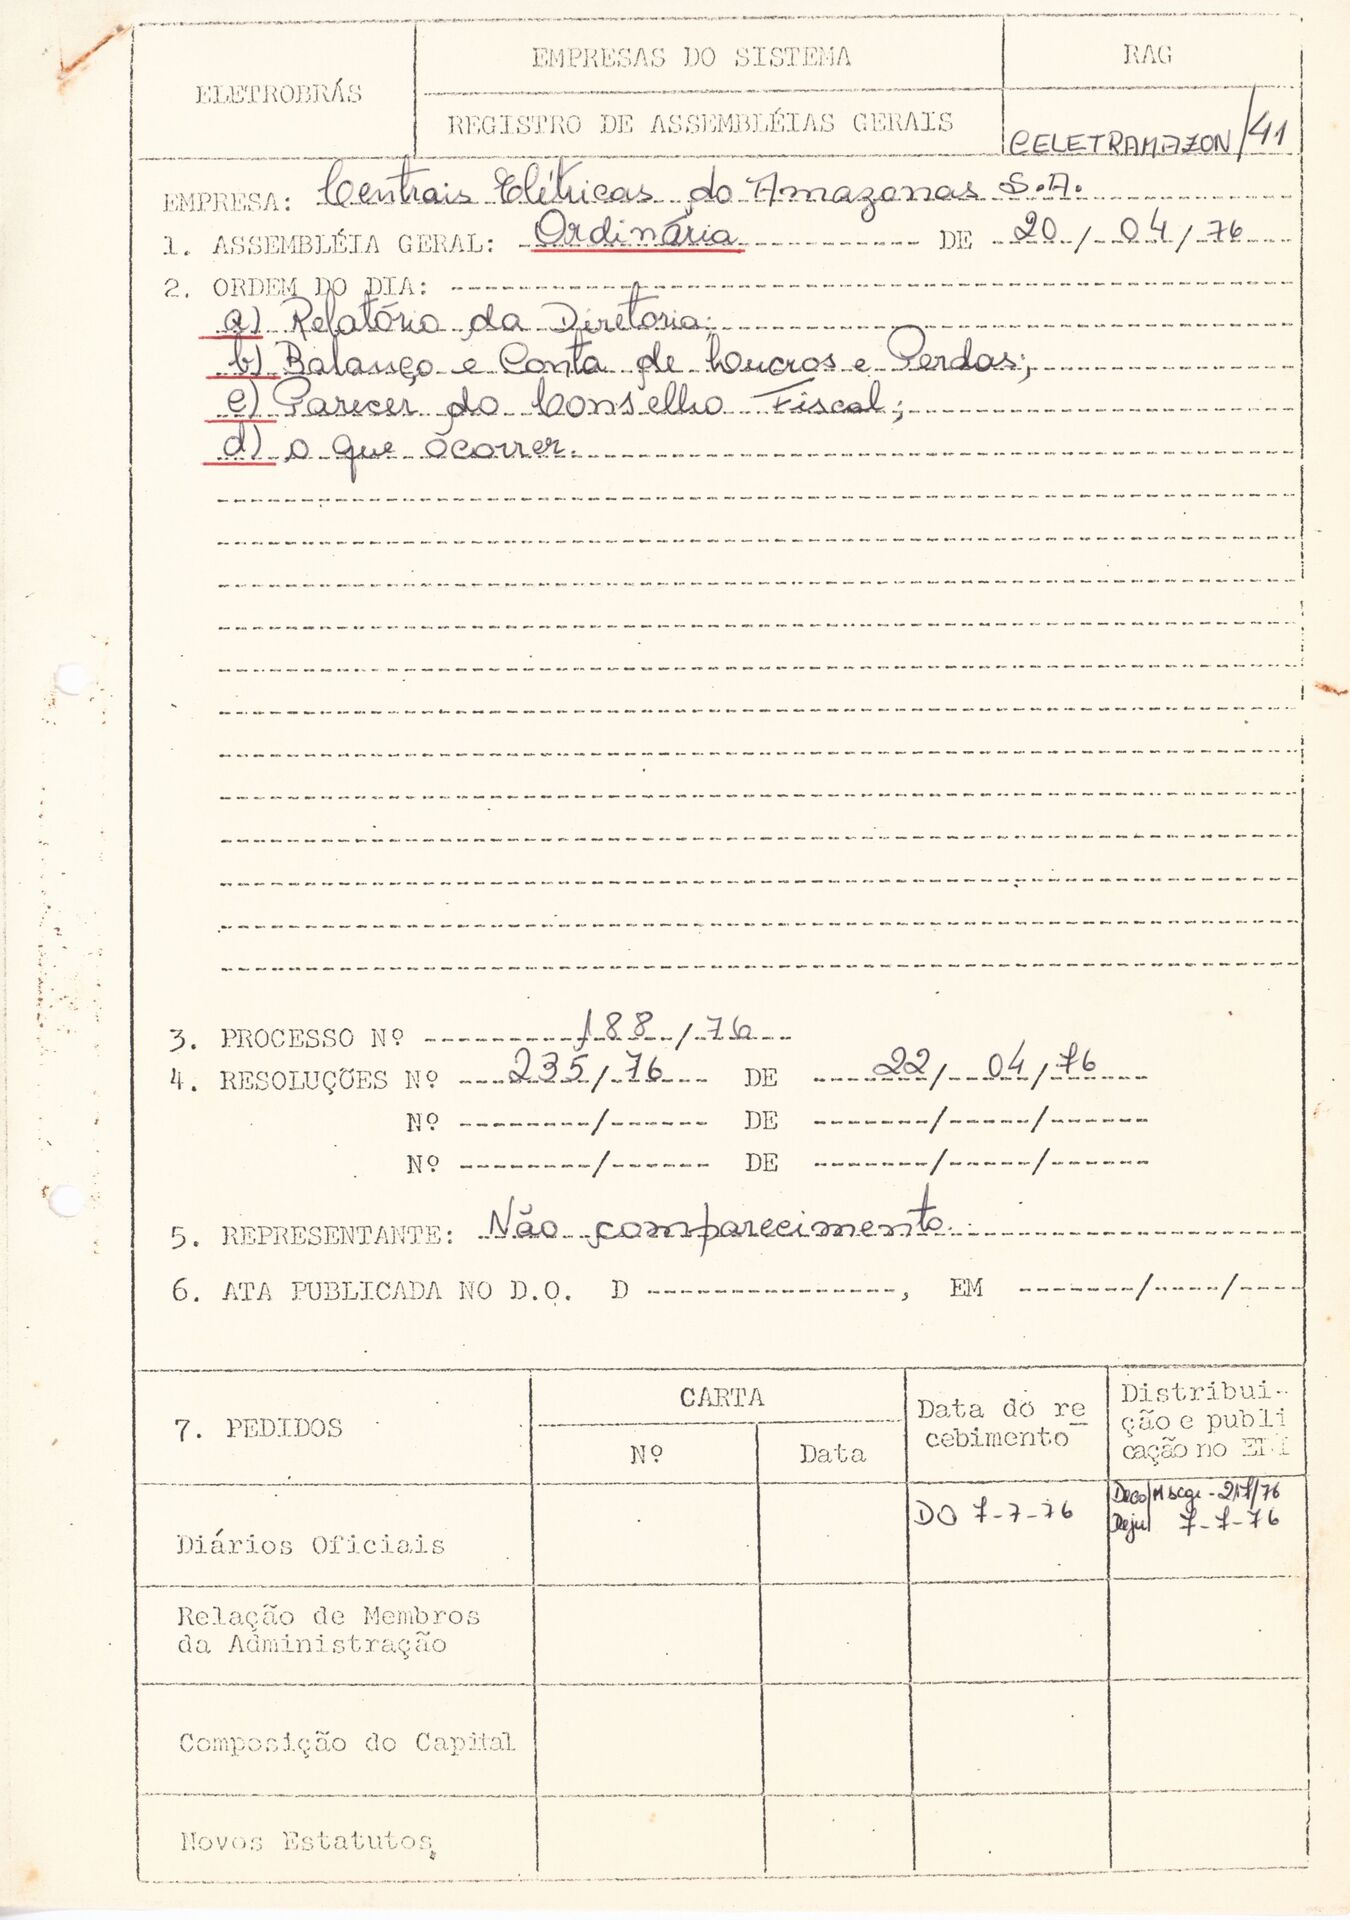 ELETROBRÁS
EMPRESAS DO SISTEMA
REGISTRO DE ASSEMBLÉIAS GERAIS
RAG
CELETRAMAZON/41
EMPRESA: Centrais Elétricas do Amazonas S.A.
1. ASSEMBLÉIA GERAL: Ordinária DE 20/04/76
2. ORDEM DO DIA:
a) Relatório da Diretoria;
b) Balanço e Conta de Lucros e Perdas;
c) Parecer do Conselho Fiscal;
d) o que ocorrer.
3. PROCESSO Nº 188/76
4. RESOLUÇÕES Nº 235/76 DE 22/04/76
Nº / DE / /
Nº / DE / /
5. REPRESENTANTE: Não comparecimento
6. ATA PUBLICADA NO D.O. D , EM / /
7. PEDIDOS
CARTA
Nº
Data
Data do re
cebimento
Distribui-
ção e publi
cação no
Diários Oficiais
DO 7-7-76
Deju 7-7-76
Relação de Membros
da Administração
Composição do Capital
Novos Estatutos